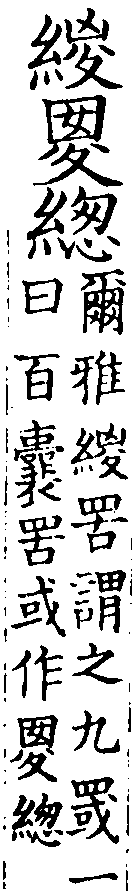 緵䍟緫
爾雅緵罟謂之九罭一
曰百囊罟或作䍟緫